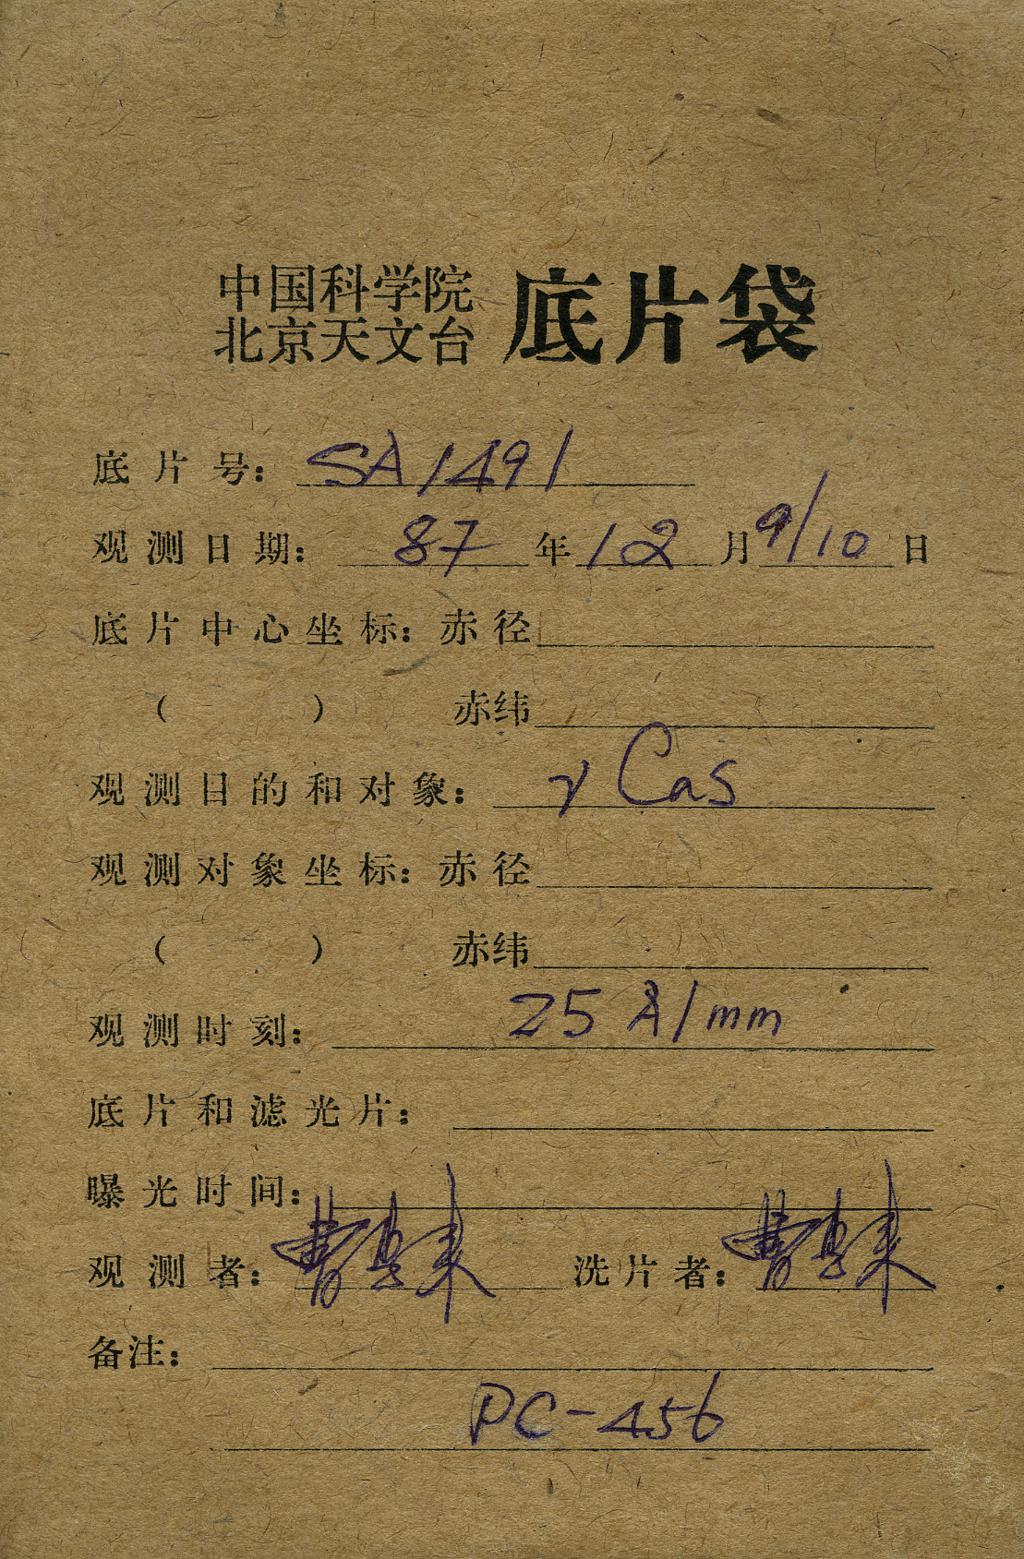 中国科学院
北京天文台 底片袋
底片号: SA1491
观测日期: 87年12月9/10日
底片中心坐标:赤径
( ) 赤纬
观测目的和对象: γ Cas
观测对象坐标:赤径
( ) 赤纬
观测时刻: 25 Å/mm
底片和滤光片:
曝光时间:
观测者: 曹 洗片者: 曹
备注:
PC-456